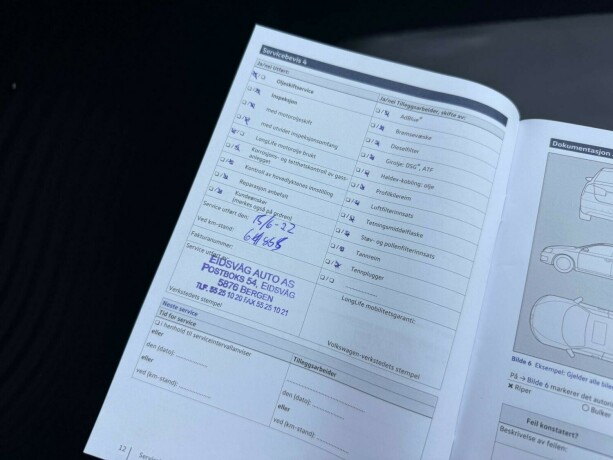 Servicebevis 6
Ja/nei Utført:
Oljeskiftservice
Inspeksjon
med motoroljeskift
med utvidet inspeksjonsomfang
LongLife motorolje brukt
Korrosjons- og tetthetskontroll av gass-
anlegget
Kontroll av hovedlyktenes innstilling
Reparasjon anbefalt
Kundeønsker
(merkes også på ordren)
Service utført den: 15/6-22
Ved km-stand:
Fakturanummer:
Service utført av:
EIDSVÅG AUTO AS
POSTBOKS 54, EIDSVÅG
5876 BERGEN
TLF. 55 25 10 20 FAX 55 25 10 21
Verkstedets stempel
Ja/nei Tilleggsarbeider, skifte av:
AdBlue®
Bremsevæske
Dieselfilter
Girolje: DSG®, ATF
Haldex-kobling: olje
Profilkilereim
Luftfilterinnsats
Tetningsmiddelflaske
Støv- og pollenfilterinnsats
Tannreim
Tennplugger
LongLife mobilitetsgaranti:
Volkswagen-verkstedets stempel
Neste service
Tid for service
I henhold til serviceintervallanviser
eller
den (dato):
eller
ved (km-stand):
Tilleggsarbeider
den (dato):
eller
ved (km-stand):
12
Dokumentasjon
Bilde 6 Eksempel: Gjelder alle
På → Bilde 6 markerer det
Riper
Bulker
Feil konstatert?
Beskrivelse av feilen: